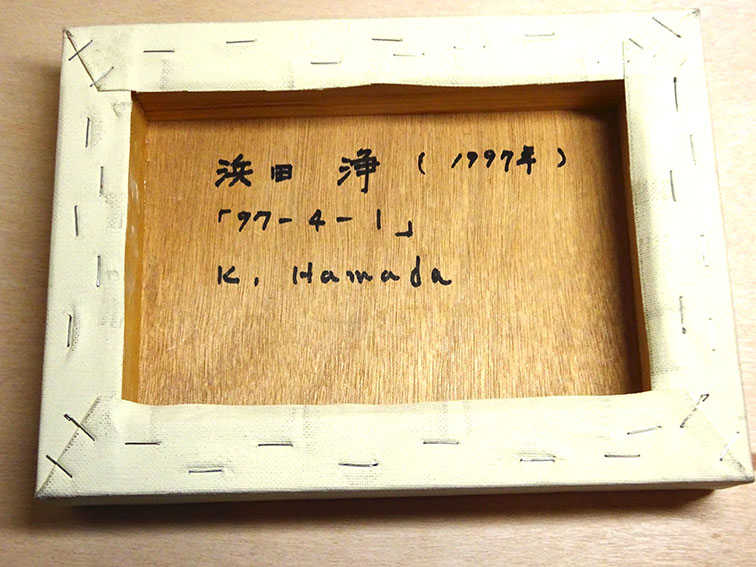 浜田 浄 (1997年)
「97-4-1」
K. Hamada